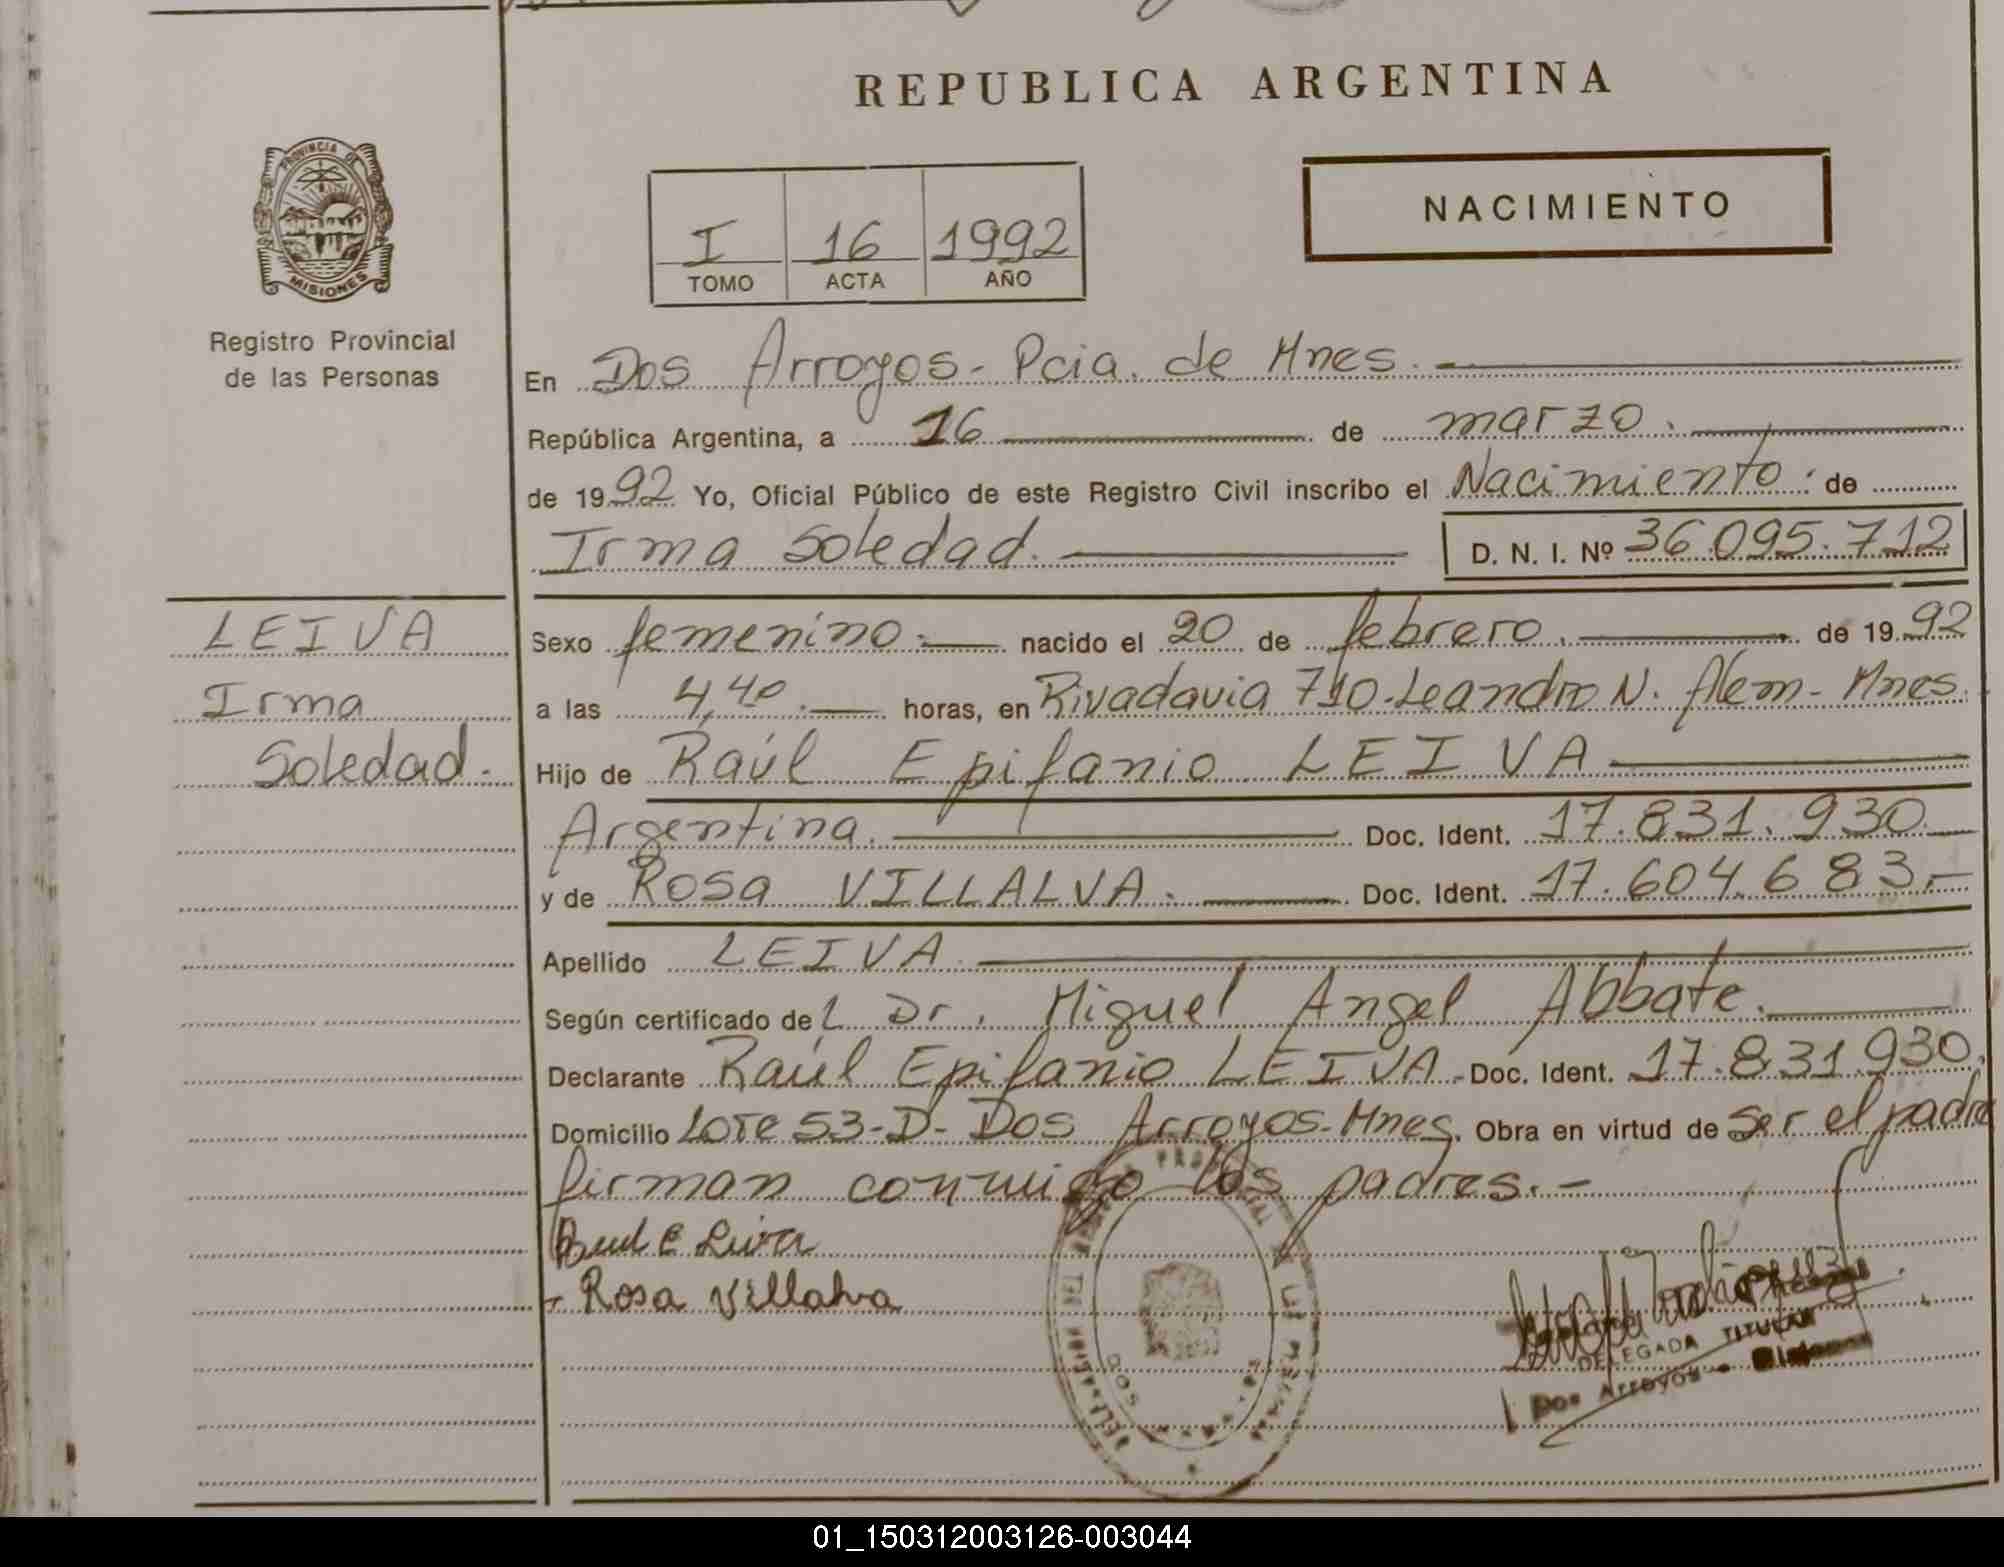 REPUBLICA ARGENTINA
PROVINCIA DE
MISIONES
Registro Provincial
de las Personas
I 16 1992
TOMO ACTA AÑO
NACIMIENTO
En Dos Arroyos - Pcia. de Mnes.
República Argentina, a 16 de marzo.
de 1992 Yo, Oficial Público de este Registro Civil inscribo el Nacimiento. de
Irma Soledad. D. N. I. Nº 36.095.712
LEIVA
Irma
Soledad.-
Sexo femenino.- nacido el 20 de febrero. de 1992
a las 4,40.- horas, en Rivadavia 710-Leandro N. Alem-Mnes.
Hijo de Raúl Epifanio LEIVA
Argentina. Doc. Ident. 17.831.930.
y de Rosa VILLALVA. Doc. Ident. 17.604.683.-
Apellido LEIVA
Según certificado del Dr. Miguel Angel Abbate.
Declarante Raúl Epifanio LEIVA - Doc. Ident. 17.831.930.
Domicilio Lote 53-D- Dos Arroyos-Mnes. Obra en virtud de ser el padre
firman conmigo los padres.-
Raul E Leiva
- Rosa Villalva
DELEGADA TITULAR
Dos Arroyos - Misiones
01_150312003126-003044